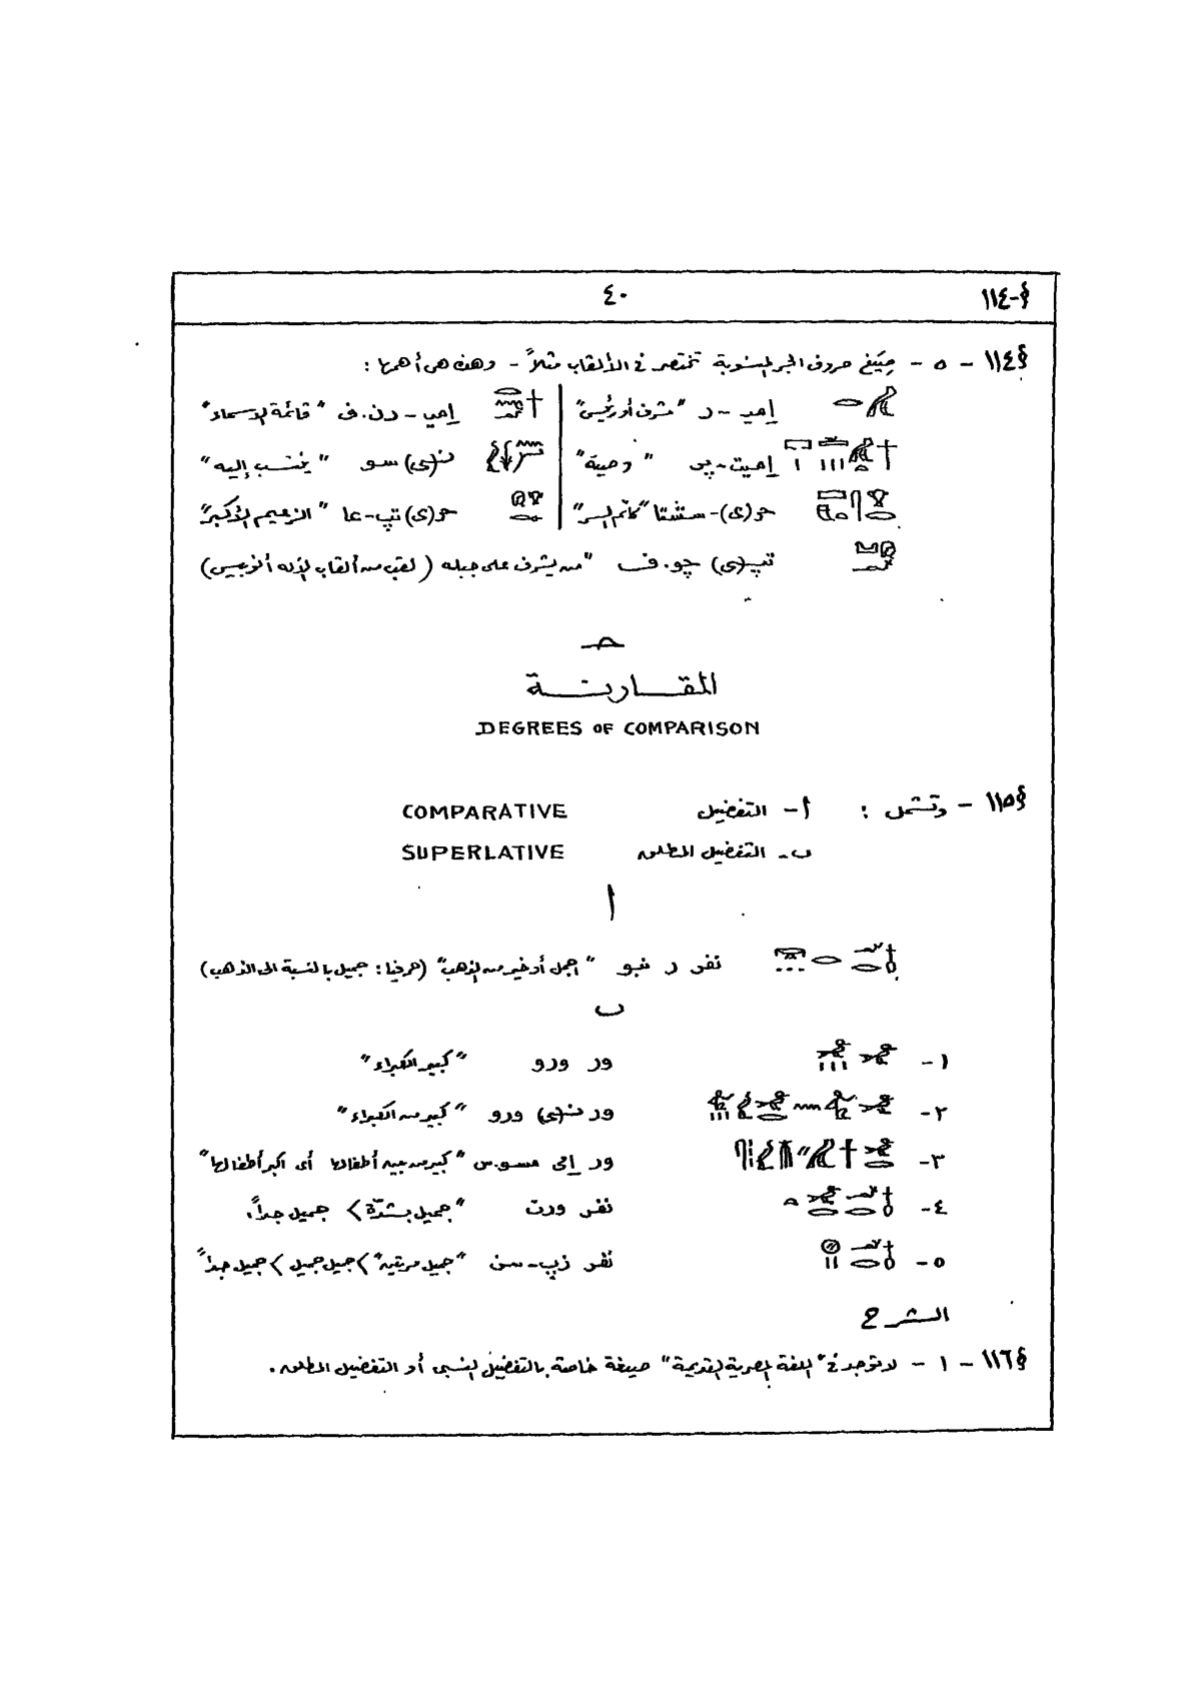 §-١١٤ ٤٠
§١١٤ - ٥ - صِيَغ حروف الجر المنسوبة تختصر في الألقاب مثلاً - وهذه هي أهمها :
إمي - ر "مشرف أو رئيس" إمي - رن.ف "قائمة الاسماء"
إميت-پر "وصية" ن(ى)سو "ينتسب إليه"
حر(ى)-سشتا "كاتم السر" حر(ى)تپ-عا "الزعيم الأكبر"
تپ(ى) چو.ف "من يشرف على جبله (لقب من ألقاب الإله أنوبيس)
حـ
المقارنة
DEGREES OF COMPARISON
§١١٥ - وتشمل : أ- التفضيل COMPARATIVE
ب- التفضيل المطلق SUPERLATIVE
أ
نفر ر نبو "اجمل أو خير من الذهب" (حرفيا: جميل بالنسبة الى الذهب)
ب
١- ور ورو "كبير الكبراء"
٢- ور ن(ى) ورو "كبير من الكبراء"
٣- ور إمى مسو.س "كبير من بين أطفالها أى اكبر أطفالها"
٤- نفر ورت "جميل بشدّة > جميل جداً.
٥- نفر زپ-سن "جميل مرتين" > جميل جميل > جميل جداً"
الشرح
§١١٦ - ١ - لا توجد في "اللغة المصرية القديمة" صيغة خاصة بالتفضيل النسبى أو التفضيل المطلق.